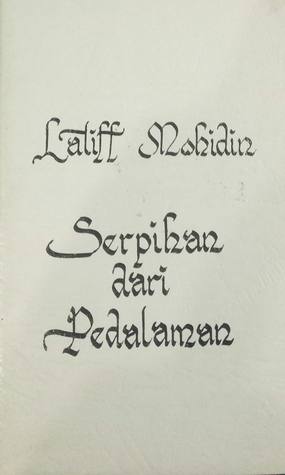 Latiff Mohidin
Serpihan
dari
Pedalaman